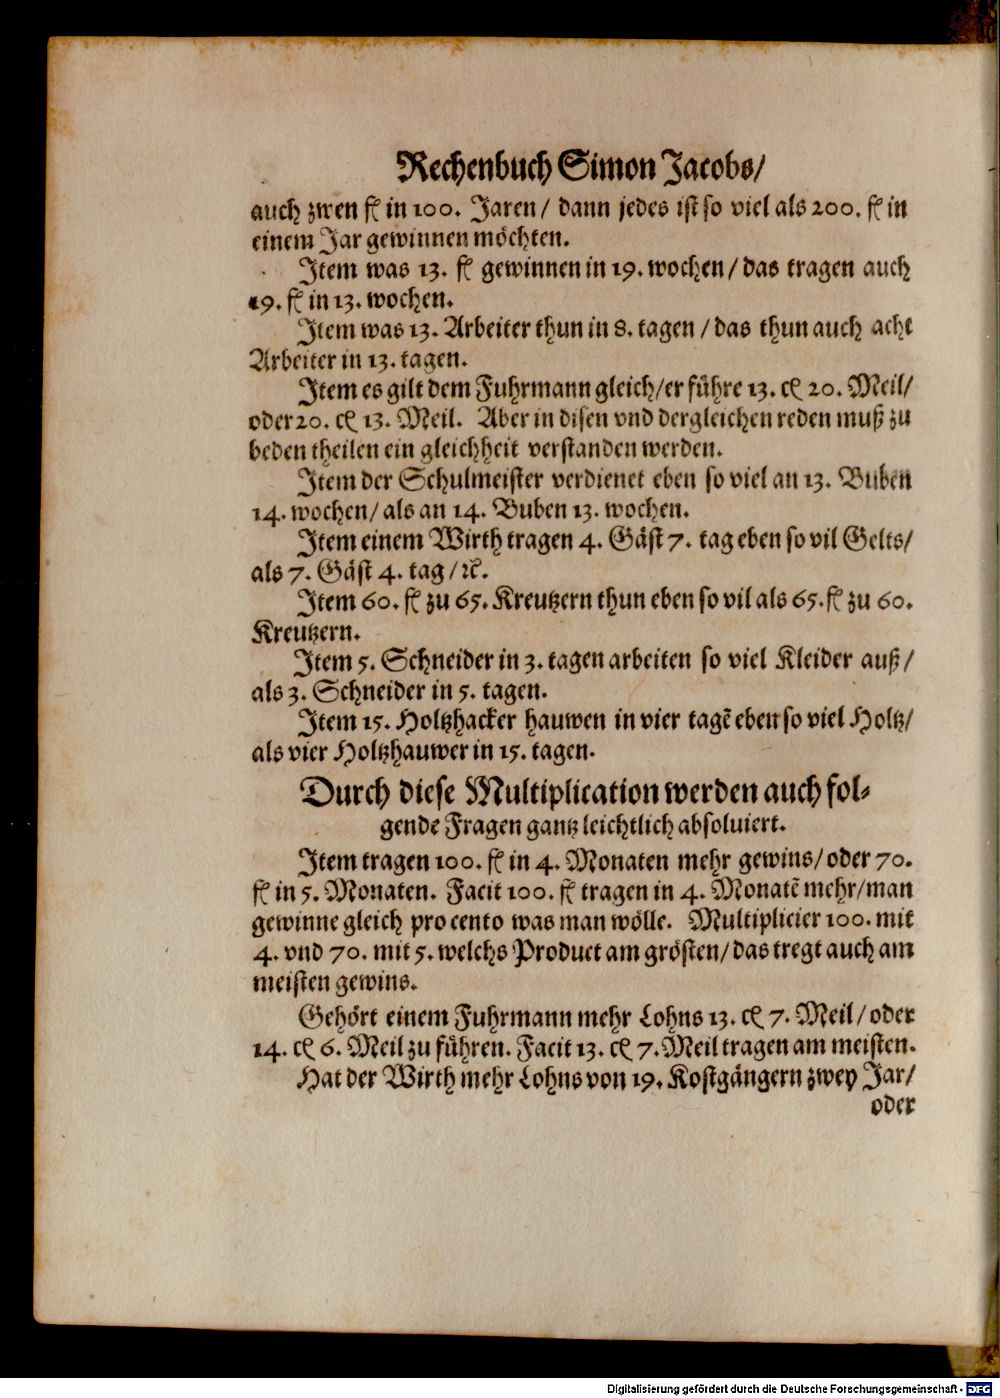 Rechenbuch Simon Jacobs/
auch zwen fl in 100. Jaren/ dann jedes ist so viel als 200. fl in
einem Jar gewinnen möchten.
Item was 13. fl gewinnen in 19. wochen/ das tragen auch
19. fl in 13. wochen.
Item was 13. Arbeiter thun in 8. tagen/ das thun auch acht
Arbeiter in 13. tagen.
Item es gilt dem Fuhrmann gleich/ er führe 13. c 20. Meil/
oder 20. c 13. Meil. Aber in disen vnd dergleichen reden muß zu
beden theilen ein gleichheit verstanden werden.
Item der Schulmeister verdienet eben so viel an 13. Buben
14. wochen/ als an 14. Buben 13. wochen.
Item einem Wirth tragen 4. Gäst 7. tag eben so vil Gelts/
als 7. Gäst 4. tag/ ꝛc.
Item 60. fl zu 65. Kreutzern thun eben so vil als 65. fl zu 60.
Kreutzern.
Item 5. Schneider in 3. tagen arbeiten so viel Kleider auß/
als 3. Schneider in 5. tagen.
Item 15. Holtzhacker hauwen in vier tagẽ eben so viel Holtz/
als vier Holtzhauwer in 15. tagen.
Durch diese Multiplication werden auch fol⸗
gende Fragen gantz leichtlich absoluiert.
Item tragen 100. fl in 4. Monaten mehr gewins/ oder 70.
fl in 5. Monaten. Facit 100. fl tragen in 4. Monatẽ mehr/ man
gewinne gleich pro cento was man wölle. Multiplicier 100. mit
4. vnd 70. mit 5. welchs Product am grösten/ das tregt auch am
meisten gewins.
Gehört einem Fuhrmann mehr Lohns 13. c 7. Meil/ oder
14. c 6. Meil zu führen. Facit 13. c 7. Meil tragen am meisten.
Hat der Wirth mehr Lohns von 19. Kostgängern zwey Jar/
oder
Digitalisierung gefördert durch die Deutsche Forschungsgemeinschaft - DFG